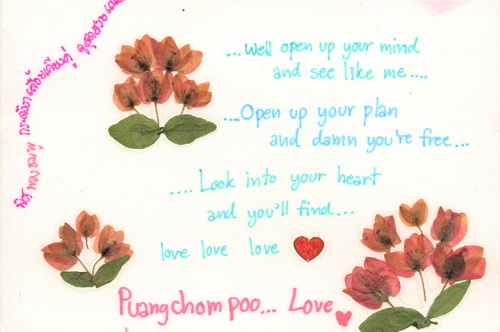 ...Well open up your mind
and see like me....
....Open up your plan
and damn you're free...
.... Look into your heart
and you'll find...
love love love
Puangchompoo... Love